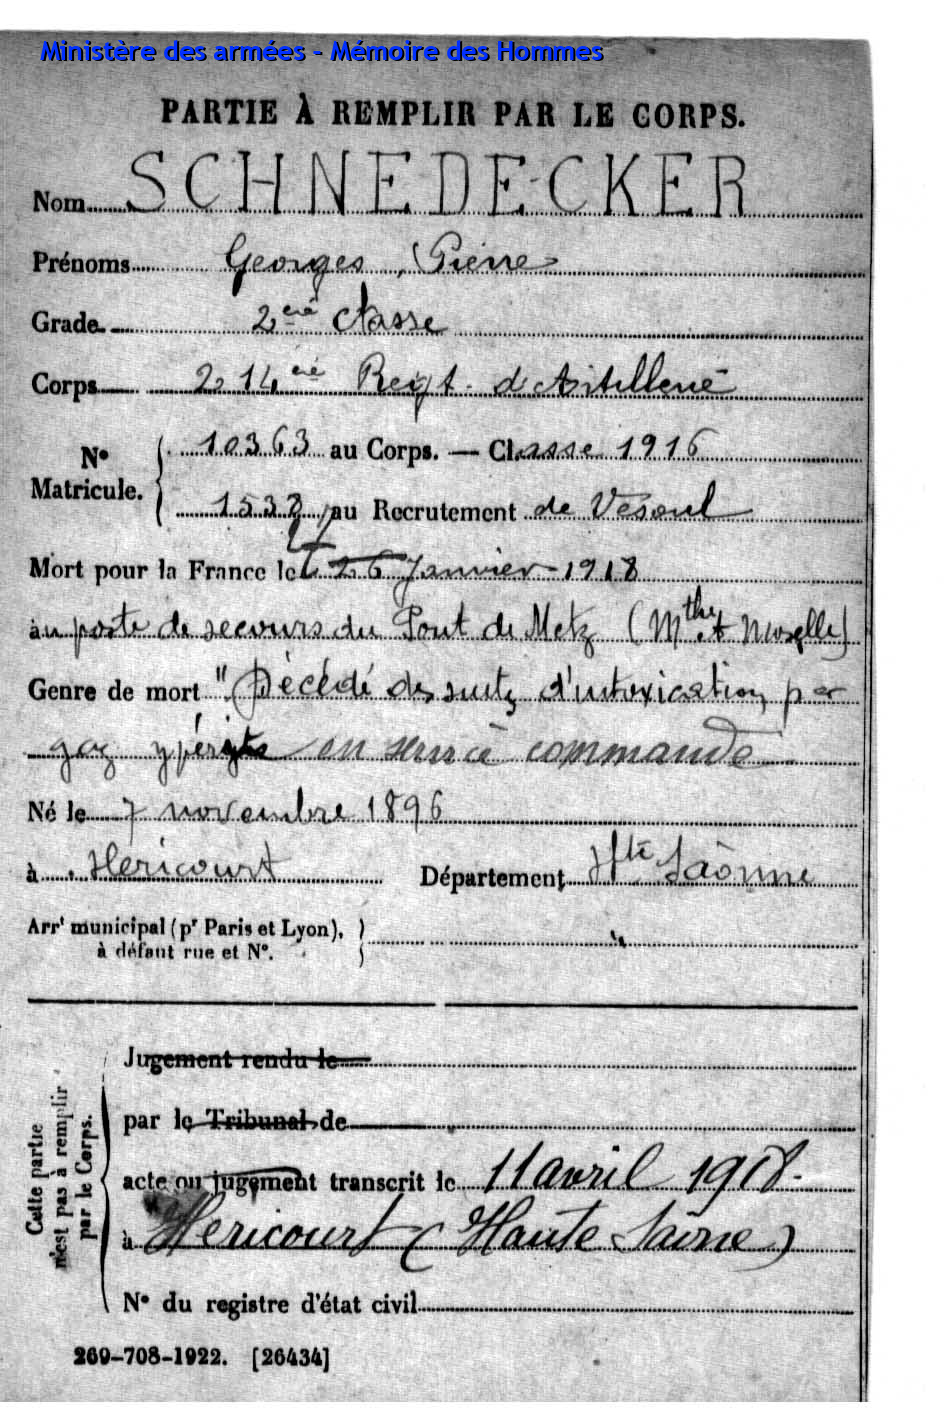 Ministère des armées - Mémoire des Hommes
PARTIE À REMPLIR PAR LE CORPS.
Nom SCHNEDECKER
Prénoms Georges, Pierre
Grade 2eme classe
Corps 214eme Regt d'Artillerie
N° Matricule. 10363 au Corps. — Classe 1916
1532 au Recrutement de Vesoul
Mort pour la France le 26 Janvier 1918
au poste de secours du Pont de Metz (Mthe et Moselle)
Genre de mort "Décédé des suites d'intoxication par
gaz ypérite en service commandé
Né le 7 novembre 1896
à Héricourt Département Hte Saônne
Arrt municipal (pr Paris et Lyon),
à défaut rue et N°.
Cette partie n'est pas à remplir par le Corps.
Jugement rendu le
par le Tribunal de
acte ou jugement transcrit le 11 avril 1918.
à Héricourt (Haute Saône)
N° du registre d'état civil
269-708-1922. [26434]